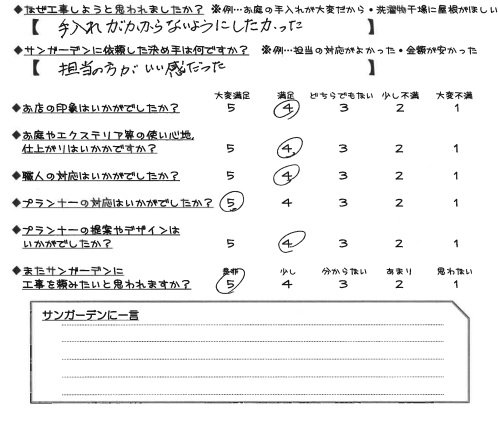 ◆なぜ工事しようと思われましたか？ ※例…お庭の手入れが大変だから・洗濯物干場に屋根がほしい
【 手入れがかからないようにしたかった 】
◆サンガーデンに依頼した決め手は何ですか？ ※例…担当の対応がよかった・金額が安かった
【 担当の方がいい感だった 】
大変満足 満足 どちらでもない 少し不満 大変不満
◆お店の印象はいかがでしたか？ 5 4 3 2 1
◆お庭やエクステリア等の使い心地、
仕上がりはいかかですか？ 5 4 3 2 1
◆職人の対応はいかがでしたか？ 5 4 3 2 1
◆プランナーの対応はいかがでしたか？ 5 4 3 2 1
◆プランナーの提案やデザインは
いかがでしたか？ 5 4 3 2 1
◆またサンガーデンに 是非 少し 分からない あまり 思わない
工事を頼みたいと思われますか？ 5 4 3 2 1
サンガーデンに一言